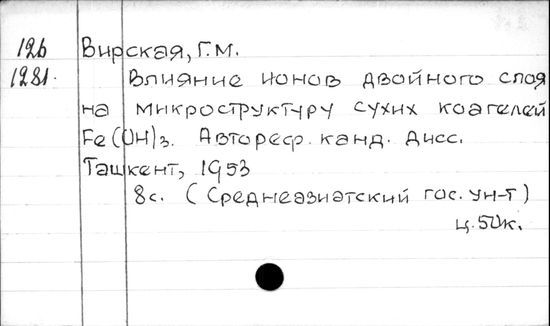 126 Вирская, Г.М.
1281. Влияние ионов двойного слоя
на микроструктуру сухих коагелей
Fe(OH)3. Автореф. канд. дисс.
Ташкент, 1953
8с. (Среднеазиатский гос. ун-т)
ц. 50к.